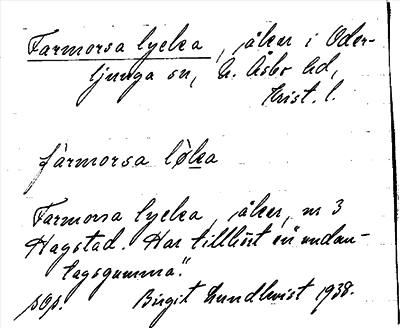 Farmorsa lycka, åker i Oder-
ljunga sn, N. Åsbo hd,
Krist. l.
fàrmorsa lø̀ka
Farmorsa lycka, åker, nr 3
Hagstad. Har tillhört en "undan-
tagsgumma".
Birgit Lundkvist 1938.